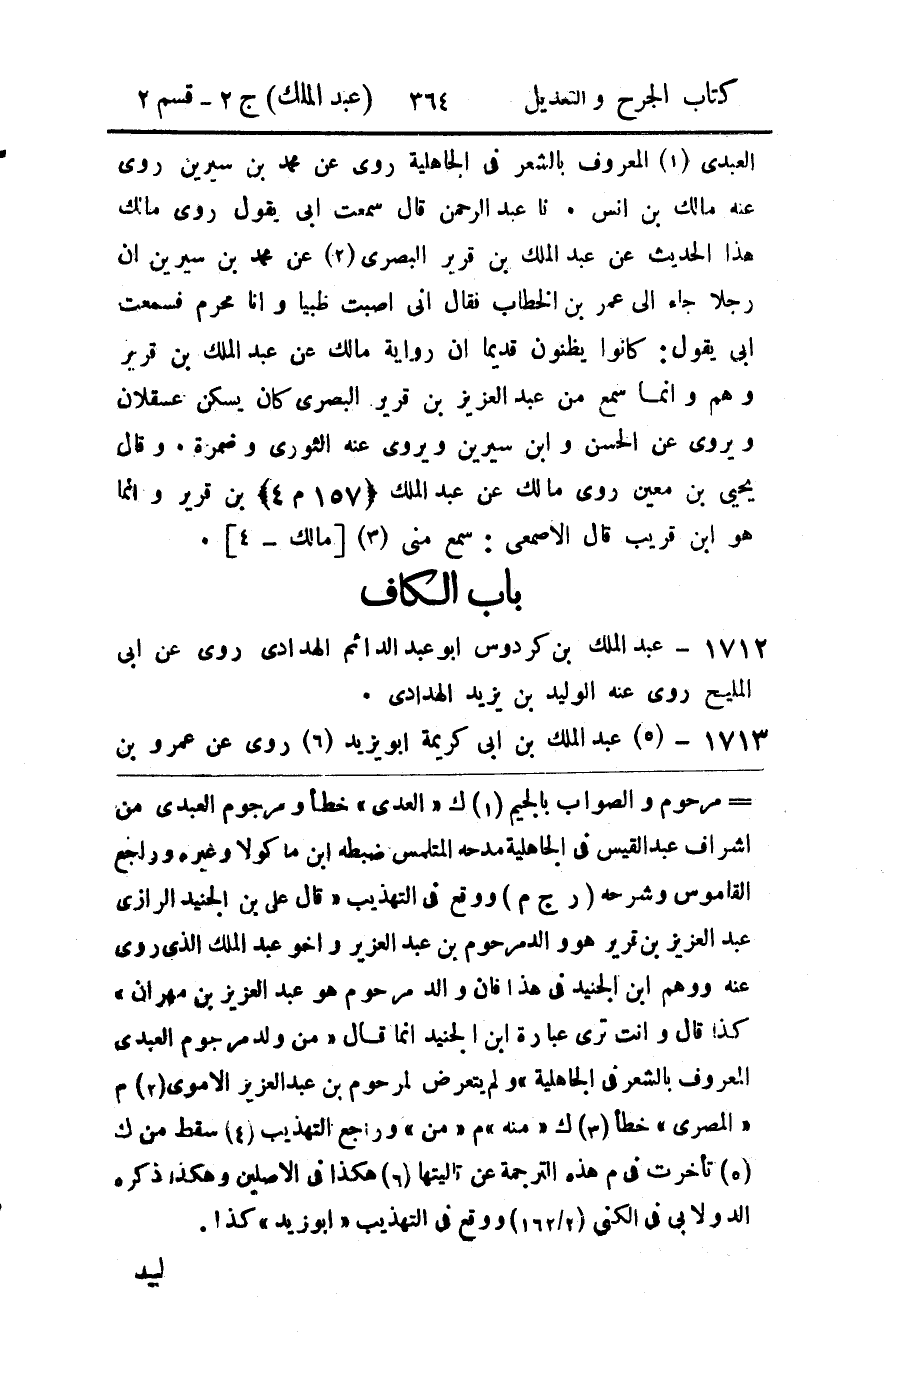 كتاب الجرح و التعديل ٣٦٤ (عبد الملك) ج ٢ - قسم ٢
العبدى (١) المعروف بالشعر فى الجاهلية روى عن محمد بن سيرين روى
عنه مالك بن انس • نا عبد الرحمن قال سمعت ابى يقول روى مالك
هذا الحديث عن عبد الملك بن قرير البصرى (٢) عن محمد بن سيرين ان
رجلا جاء الى عمر بن الخطاب فقال انى اصبت ظبيا و انا محرم فسمعت
ابى يقول: كانوا يظنون قديما ان رواية مالك عن عبد الملك بن قرير
وهم و انما سمع من عبد العزيز بن قرير البصرى كان يسكن عسقلان
و يروى عن الحسن و ابن سيرين ويروى عنه الثورى و ضمرة • و قال
يحيى بن معين روى مالك عن عبد الملك ﴿١٥٧ م ٤﴾ بن قرير و انما
هو ابن قريب قال الاصمعى : سمع منى (٣) [مالك - ٤] •
باب الكاف
١٧١٢ - عبد الملك بن كردوس ابو عبد الدائم الهدادى روى عن ابى
المليح روى عنه الوليد بن يزيد الهدادى •
١٧١٣ - (٥) عبد الملك بن ابى كريمة ابو يزيد (٦) روى عن عمرو بن
= مرحوم و الصواب بالجيم (١) ك « العدى » خطأ و مرجوم العبدى من
اشراف عبد القيس فى الجاهلية مدحه المتلمس ضبطه ابن ماكولا وغيره وراجع
القاموس وشرحه ( ر ج م ) ووقع فى التهذيب « قال على بن الجنيد الرازى
عبد العزيز بن قرير هو والد مرحوم بن عبد العزيز و اخو عبد الملك الذى روى
عنه ووهم ابن الجنيد فى هذا فان والد مرحوم هو عبد العزيز بن مهران »
كذا قال و انت ترى عبارة ابن الجنيد انما قال « من ولد مرجوم العبدى
المعروف بالشعر فى الجاهلية » ولم يتعرض لمرحوم بن عبد العزيز الاموى (٢) م
« المصرى » خطأ (٣) ك « منه » م « من » وراجع التهذيب (٤) سقط من ك
(٥) تأخرت فى م هذه الترجمة عن تاليتها (٦) هكذا فى الاصلين وهكذا ذكره
الدولابى فى الكنى (١٦٢/٢) ووقع فى التهذيب « ابو زيد » كذا .
ليد